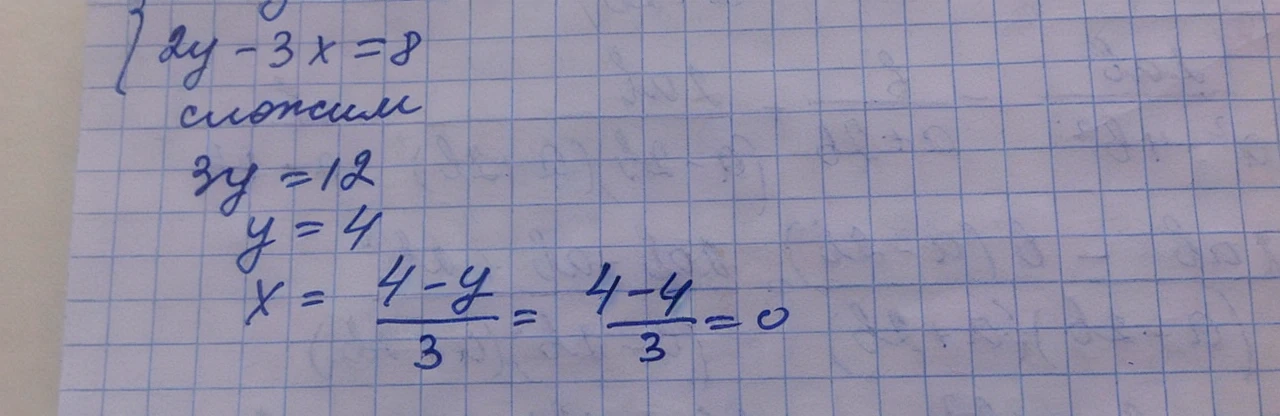 2y - 3x = 8
сложим
3y = 12
y = 4
x = \frac{4-y}{3} = \frac{4-4}{3} = 0